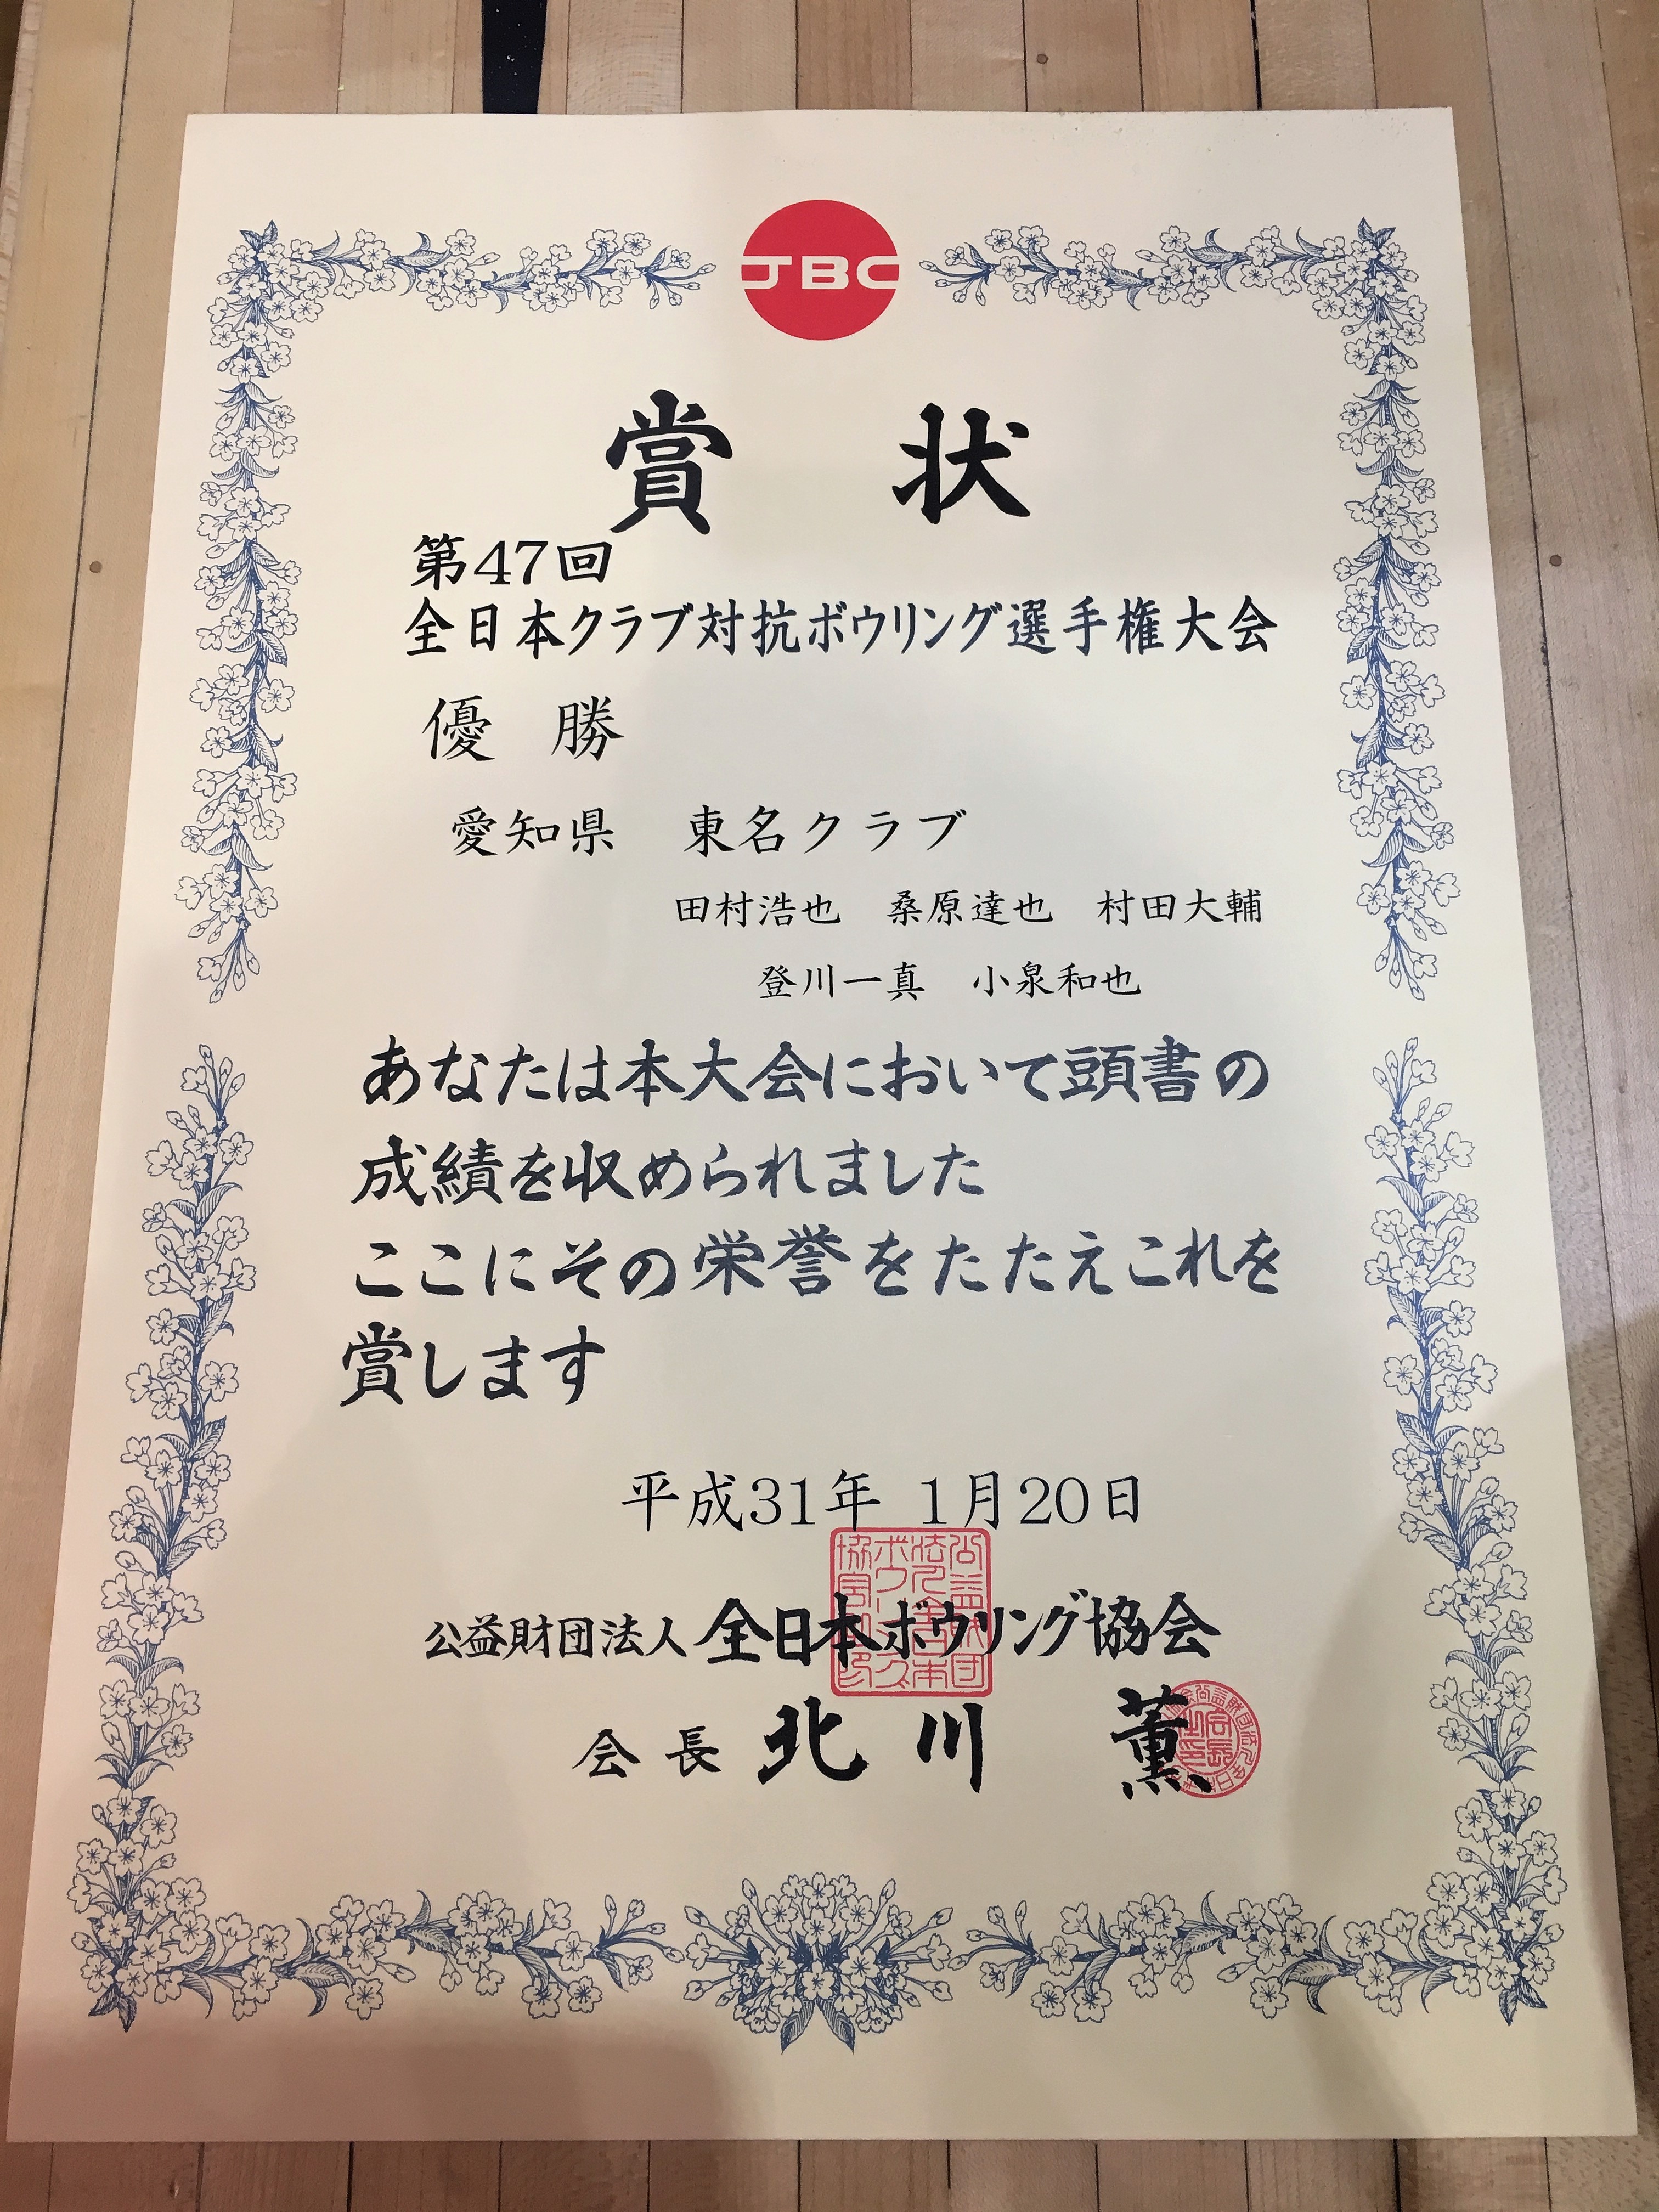 JBC
賞 状
第47回
全日本クラブ対抗ボウリング選手権大会
優 勝
愛知県 東名クラブ
田村浩也 桑原達也 村田大輔
登川一真 小泉和也
あなたは本大会において頭書の
成績を収められました
ここにその栄誉をたたえこれを
賞します
平成31年 1月20日
公益財団法人 全日本ボウリング協会
会長 北川 薫